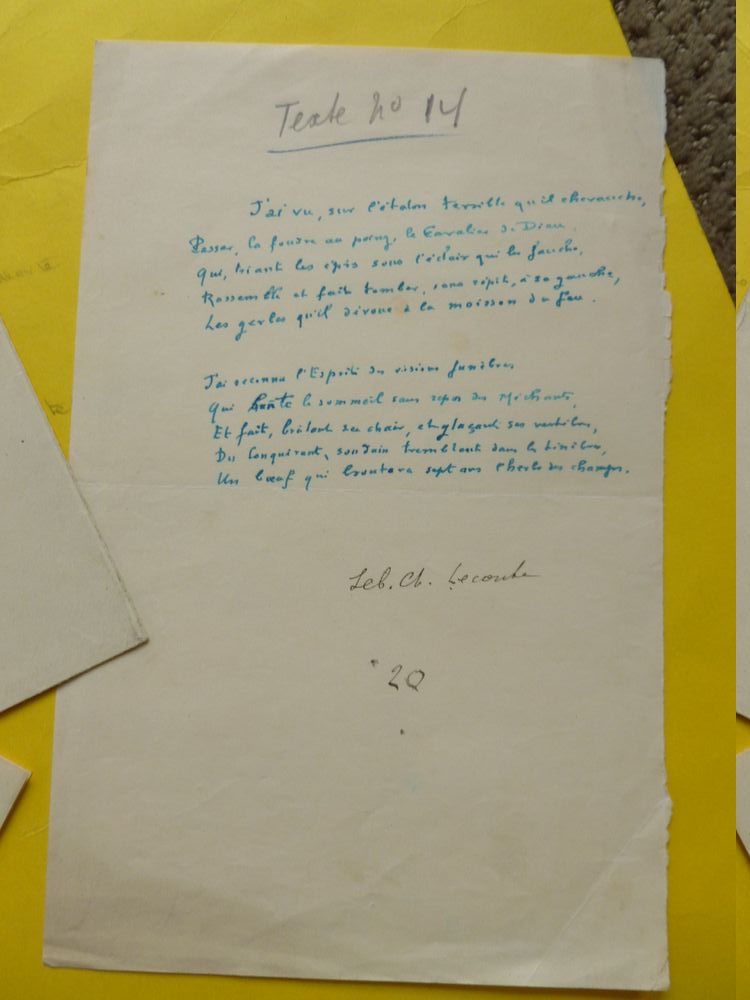 Texte no 14
J'ai vu, sur l'étalon terrible qu'il chevauche,
Passer, la foudre au poing, le Cavalier de Dieu
Qui, triant les épis sous l'éclair qui les fauche,
Rassemble et fait tomber, sans répit, à sa gauche,
Les gerbes qu'il dévoue à la moisson du feu.
J'ai reconnu l'Esprit des visions funèbres
Qui hante le sommeil sans repos des Méchants,
Et fait, brûlant sa chair, et glaçant ses vertèbres,
Du Conquérant, soudain tremblant dans les ténèbres,
Un bœuf qui broutera sept ans l'herbe des champs.
Seb. Ch. Leconte
20